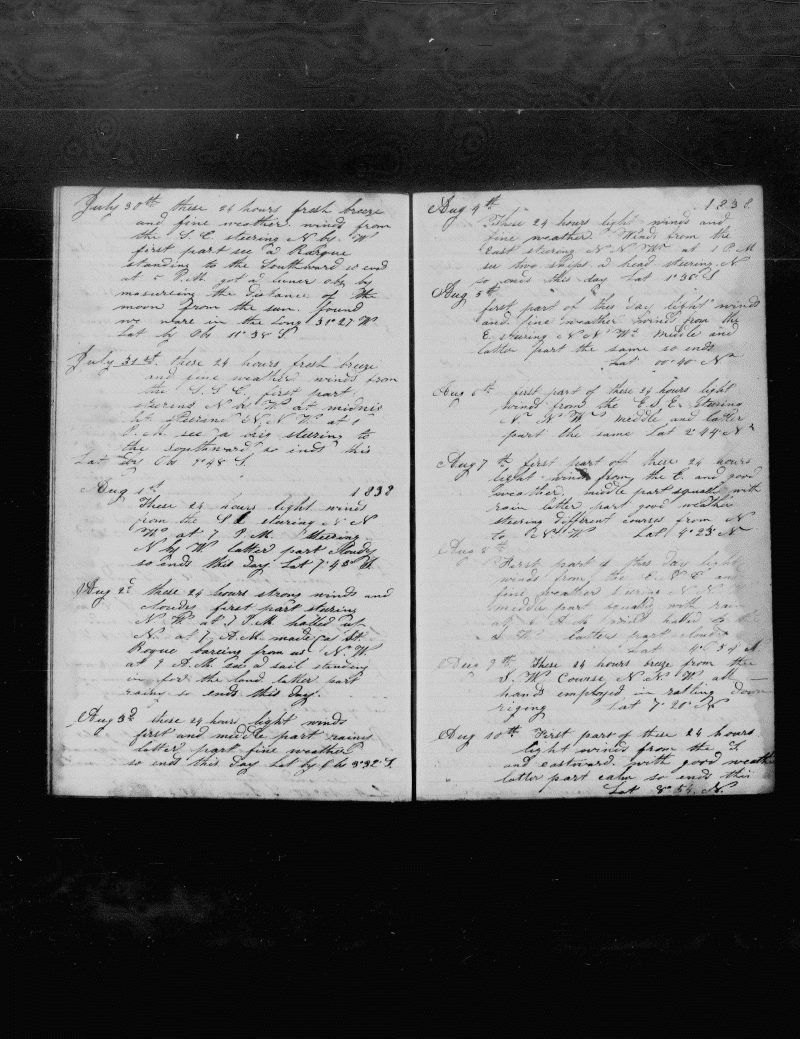 July 30th these 24 hours fresh breeze
and fine weather winds from
the S. E steering N by W
first part see a Barque
standing to the Southward so end
at 5 P.M. got a luner obs by
masureing the distance of the
moon from the sun. found
we ware in the Long 31° 27 W
Lat by Obs 11° 38 S
July 31st. these 24 hours fresh breeze
and fine weather winds from
the S.S.E. first part
steering N b W at midnig
ht steering N. N W at
P.M. see a brig steering to
the southward so ends this
Lat by Obs 9° 48 S.
Aug 1st 1838
These 24 hours light winds
from the S E steering N N
W at 7 P.M. steering
N by W latter part Cloudy
so ends this day Lat 7° 43 S.
Aug 2d these 24 hours strong winds and
cloudes first part steering
N W at 7 P.M halled up
N. at 7, A.M. made St.
Roque baring from us N. W
at 9 A.M. see a sail standing
in for the land latter part
rainy so ends this day.
Aug 3d these 24 hours light winds
first and middle part rainey
latter part fine weather
so ends this day Lat by Obs 3° 32 S.
Aug 4th 1838
These 24 hours light winds and
fine weather Winds from the
East steering N N W at 1 P.M
see two ships a head steering N
so ends this day Lat 1° 35 S
Aug 5th
first part of this day light winds
and fine weather winds from the
E steering N N W. middle and
latter part the same so ends
Lat 00° 40 N
Aug 6th first part of these 24 hours light
winds from the E S E Steering
N N W middle and latter
part the same Lat 2° 44 N
Aug 7th first part of these 24 hours
light winds from the E. and good
weather, middle part squally with
rain latter part good weather
steering different courses from N
to N W Lat 4° 23 N
Aug 8th
First part of this day light
winds from the E. S E and
fine weather steering N N
middle part squally with rain
at 6 A.M wind halled to the
S W latter part cloudy
Lat 54 N
Aug 9th These 24 hours breeze from the
S. W Course N N W all
hands employed in ratling down
riging Lat 7° 20 N
Aug 10th First part of these 24 hours
light winds from the S
and eastward. with good weather
latter part calm so ends this
Lat 8° 54 N.